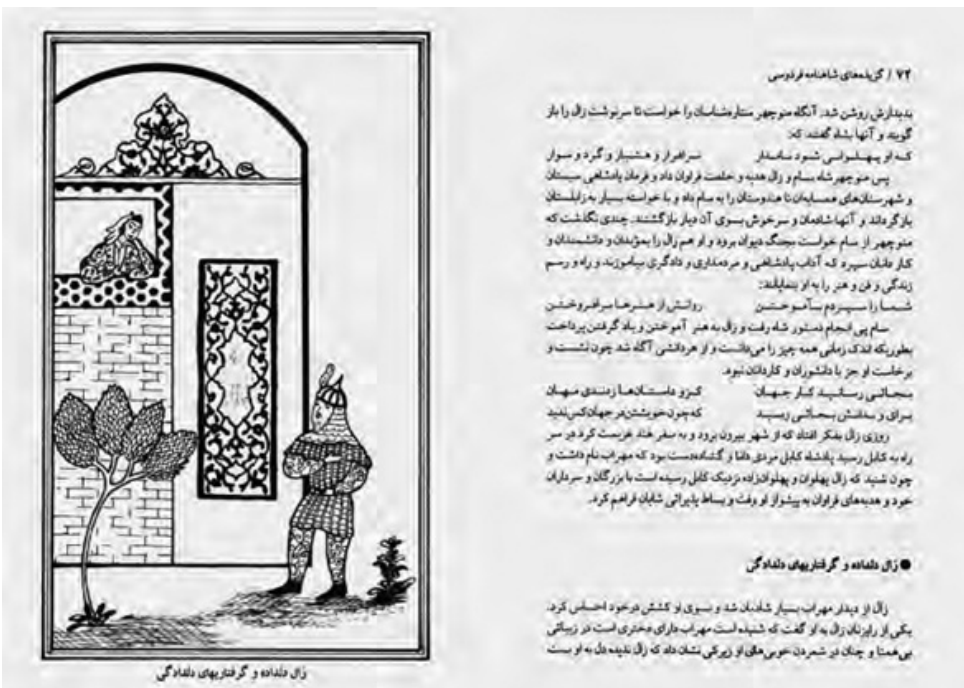 ۷۲ / گزیده‌های شاهنامه فردوسی
بدیدارش روشن شد. آنگاه منوچهر ستاره‌شناسان را خواست تا سرنوشت زال را باز
گویند و آنها بشاه گفتند که:
که او پهلوانی شود نامدار سرافراز و هشیار و گرد و سوار
پس منوچهر شاه سام و زال هدیه و خلعت فراوان داد و فرمان پادشاهی سیستان
و شهرستان‌های همسایه‌آن تا هندوستان را به سام داد و با خواسته بسیار به زابلستان
بازگرداند و آنها شادمان و سرخوش بسوی آن دیار بازگشتند. چندی نگذشت که
منوچهر از سام خواست بجنگ دیوان برود و او هم زال را بموبدان و دانشمندان و
کاردانان سپرد که آداب پادشاهی و مردمداری و دادگری بیاموزند و راه و رسم
زندگی و فن و هنر را به او بنمایانند:
شما را سپردم بآموختن روانش از هنرها برافروختن
سام پی انجام دستور شاه رفت و زال به هنر آموختن و یاد گرفتن پرداخت
بطوریکه اندک زمانی همه چیز را می‌دانست و از هر دانشی آگاه شد چون نشست و
برخاست او جز با دانشوران و کاردانان نبود.
بجائی رسانید کار جهان کزو داستان‌ها زدندی مهان
برای و بدانش بجائی رسید که چون خویشتن در جهان کس ندید
روزی زال بفکر افتاد که از شهر بیرون برود و به سفر هند عزیمت کرد در سر
راه به کابل رسید پادشاه کابل مردی دانا و گشاده‌دست بود که مهراب نام داشت و
چون شنید که زال پهلوان و پهلوان‌زاده نزدیک کابل رسیده است با بزرگان و سرداران
خود و هدیه‌های فراوان به پیشواز او رفت و بساط پذیرائی شایان فراهم کرد.
● زال دلداده و گرفتاریهای دلدادگی
زال از دیدار مهراب بسیار شادمان شد و بسوی او کشش در خود احساس کرد.
یکی از رایزنان زال به او گفت که شنیده است مهراب دارای دختری است در زیبائی
بی‌همتا و چنان در شمردن خوبی‌های او زیرکی نشان داد که زال ندیده دل به او بست
زال دلداده و گرفتاریهای دلدادگی